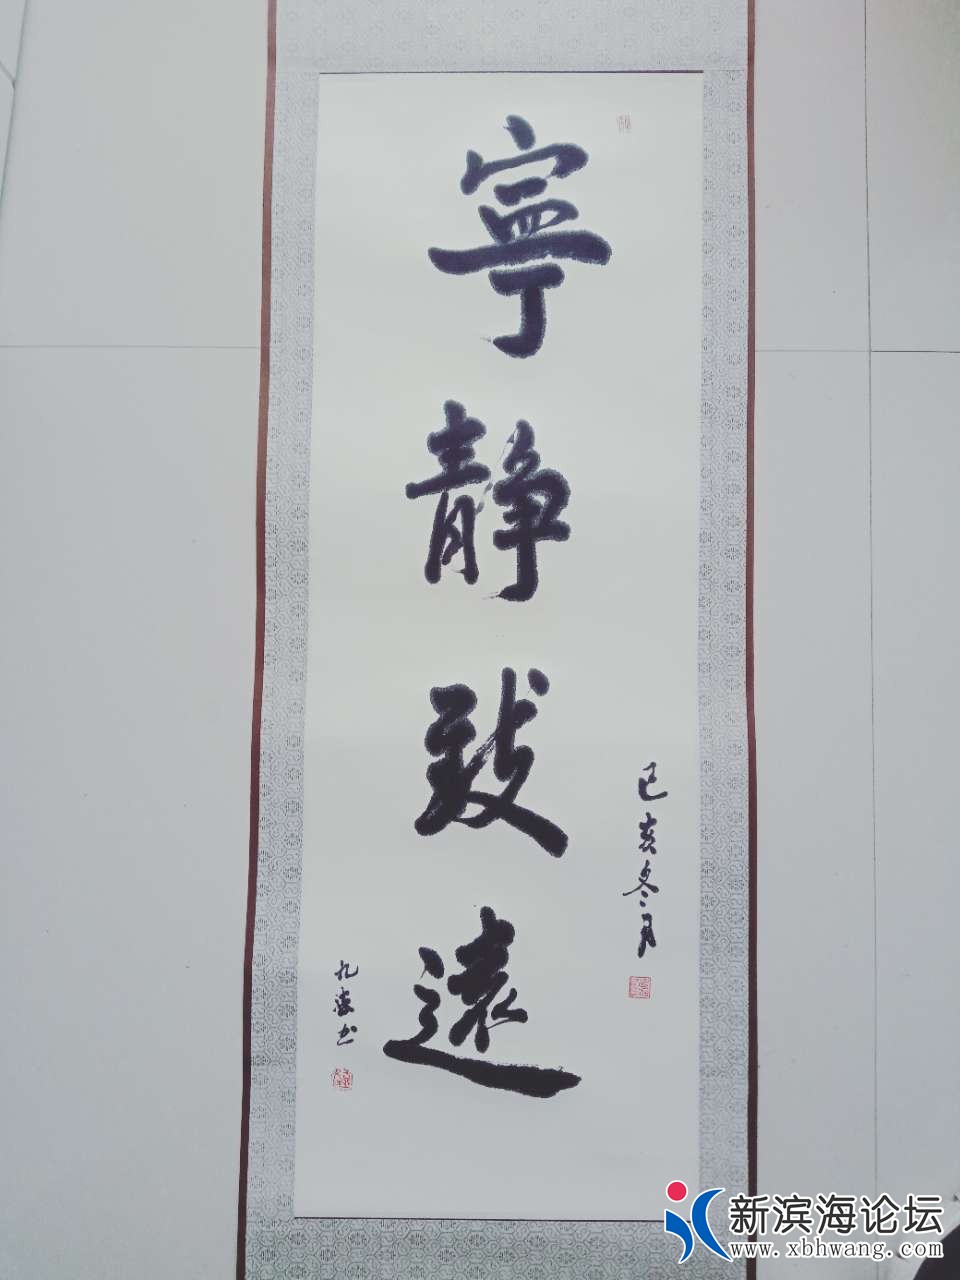 寧靜致遠
己亥冬月
九
书
新滨海论坛
www.xbhwang.com